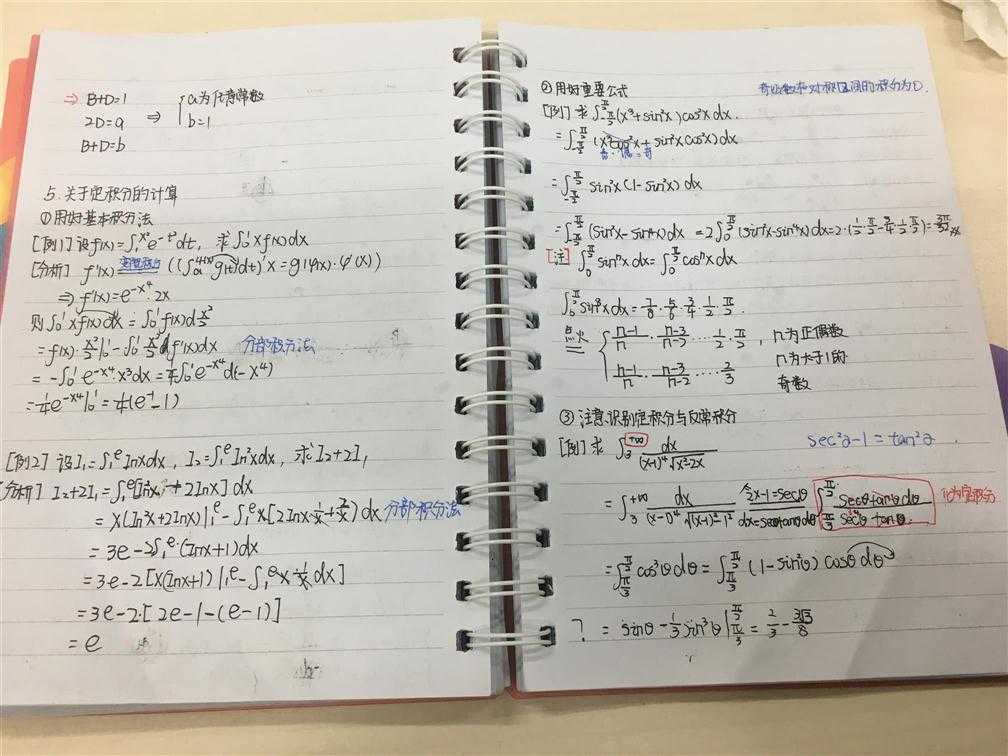 ⇒ B+D=1
2D=a ⇒ { a为任意常数
b=1
B+D=b
5. 关于定积分的计算
①用好基本积分法
[例1] 设f(x)=∫₁^x² e^-t² dt, 求∫₀¹xf(x)dx
[分析] f'(x) 变限积分 ((∫_a^φ(x) g(t)dt)'x=g(φ(x)·φ'(x))
⇒ f'(x)=e^-x⁴·2x
则∫₀¹xf(x)dx=∫₀¹f(x)d x²/2
=f(x)·x²/2|₀¹-∫₀¹ x²/2 df'(x)dx 分部积分法
=-∫₀¹e^-x⁴·x³dx=¼∫₀¹e^-x⁴d(-x⁴)
=¼e^-x⁴|₀¹=¼(e⁻¹-1)
[例2] 设I₁=∫₁^e lnxdx, I₂=∫₁^e ln²xdx, 求I₂+2I₁
[分析] I₂+2I₁=∫₁^e[ln²x+2lnx]dx
=x(ln²x+2lnx)|₁^e-∫₁^e x[2lnx·1/x+2/x)dx 分部积分法
=3e-2∫₁^e·(lnx+1)dx
=3e-2[x(lnx+1)|₁^e-∫₁^e x·1/x dx]
=3e-2·[2e-1-(e-1)]
=e
②用好重要公式 奇函数在对称区间的积分为0.
[例] 求∫_-π/2^π/2(x³+sin²x)cos²xdx.
=∫_-π/2^π/2(x³cos²x+sin²xcos²x)dx
奇·偶=奇
=∫_-π/2^π/2 sin²x(1-sin²x)dx
=∫_-π/2^π/2(sin²x-sin⁴x)dx=2∫₀^π/2(sin²x-sin⁴x)dx=2·(½·π/2-¾·½·π/2)=
[注] ∫₀^π/2 sinⁿxdx=∫₀^π/2 cosⁿxdx
∫₀^π/2 sin⁸xdx=7/8·5/6·3/4·1/2·π/2
点火 { n-1/n·n-3/n-2……1/2·π/2, n为正偶数
n-1/n·n-3/n-2……2/3 n为大于1的
奇数
③注意识别定积分与反常积分
[例] 求∫₃^+∞ dx/(x-1)⁴√x²-2x sec²∂-1=tan²∂.
=∫₃^+∞ dx/(x-1)⁴√(x-1)²-1² 令x-1=secθ dx=secθtanθdθ ∫_π/3^π/2 secθtanθdθ/sec⁴θtanθ. 化为定积分
=∫_π/3^π/2 cos³θdθ=∫_π/3^π/2(1-sin²θ)cosθdθ
? =sinθ-⅓sin³θ|_π/3^π/2=2/3-3√3/8